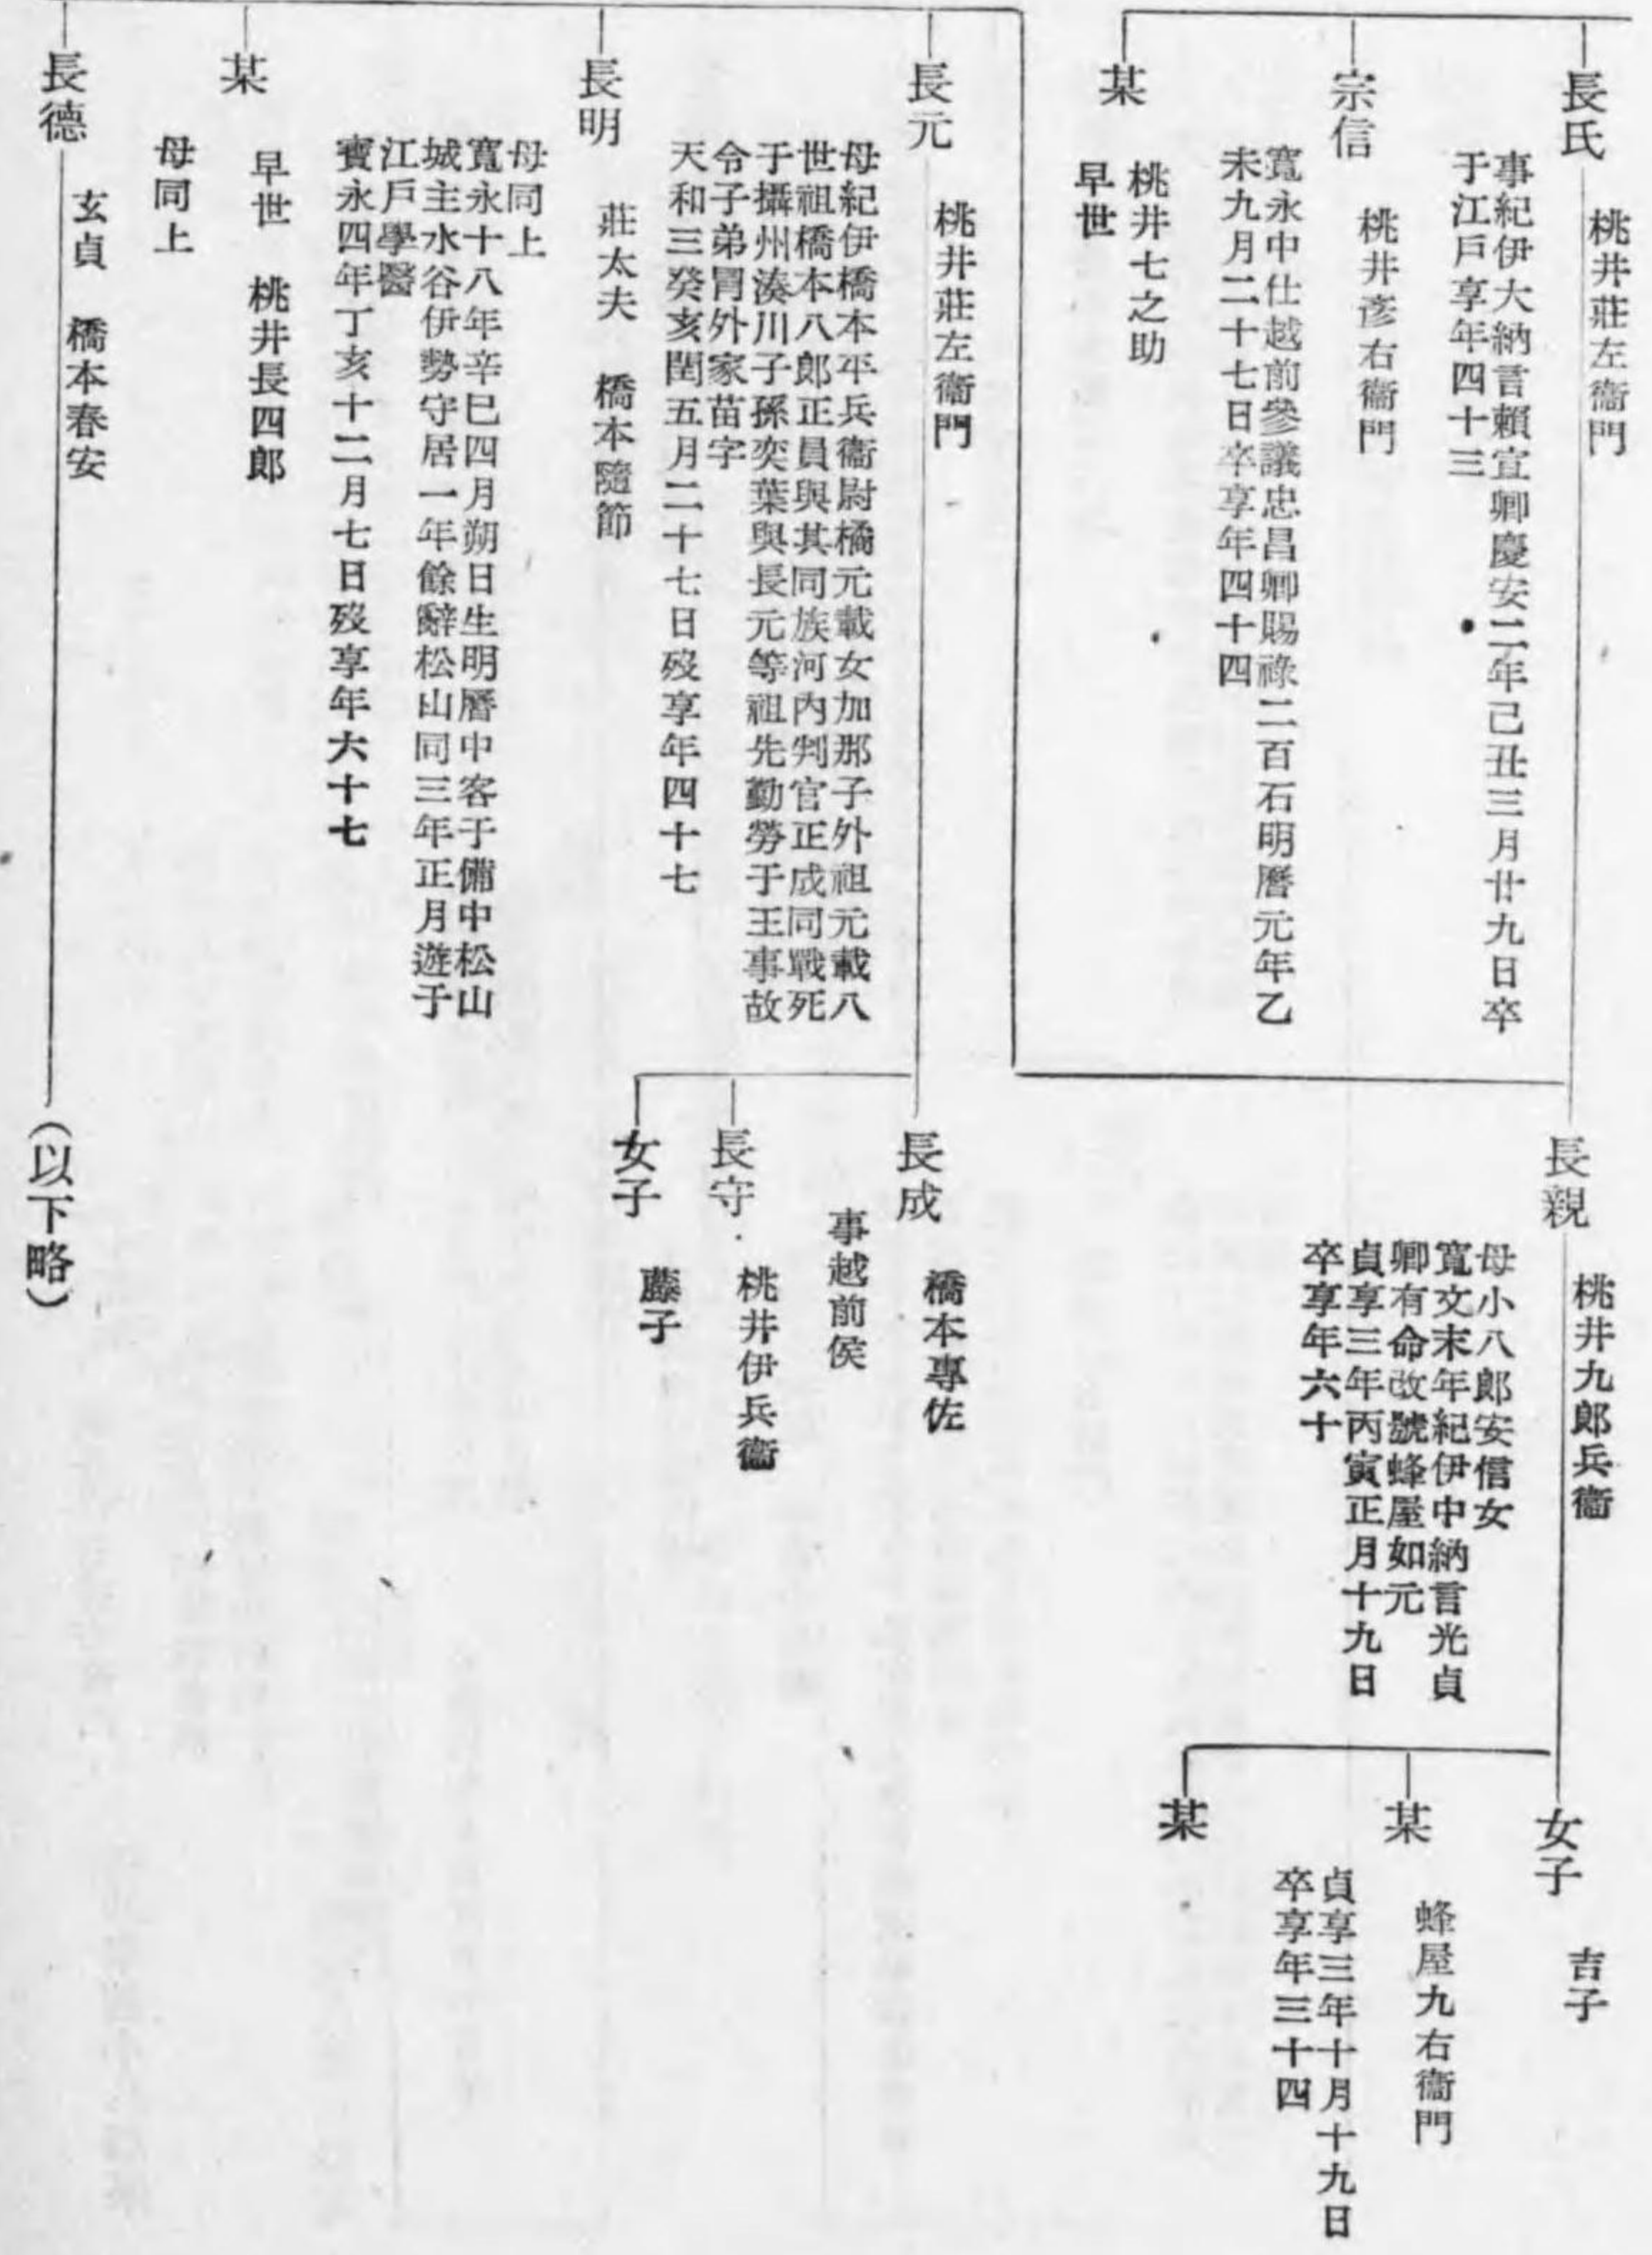 長氏
桃井莊左衞門
事紀伊大納言賴宣卿慶安二年己丑三月廿九日卒
于江戶享年四十三
宗信
桃井彥右衞門
寬永中仕越前參議忠昌卿賜祿二百石明曆元年乙
未九月二十七日卒享年四十四
某
桃井七之助
早世
長親
桃井九郎兵衞
母小八郎安信女
寬文末年紀伊中納言光貞
卿有命改號蜂屋如元
貞享三年丙寅正月十九日
卒享年六十
女子
吉子
某
蜂屋九右衞門
貞享三年十月十九日
卒享年三十四
某
長元
桃井莊左衞門
母紀伊橋本平兵衞尉橘元載女加那子外祖元載八
世祖橋本八郎正員與其同族河內判官正成同戰死
于攝州湊川子孫奕葉與長元等祖先勤勞于王事故
令子弟冒外家苗字
天和三癸亥閏五月二十七日歿享年四十七
長明
莊太夫 橋本隨節
母同上
寬永十八年辛巳四月朔日生明曆中客于備中松山
城主水谷伊勢守居一年餘辭松山同三年正月遊于
江戶學醫
寶永四年丁亥十二月七日歿享年六十七
某
早世 桃井長四郎
母同上
長德
玄貞 橋本春安
長成
橋本專佐
事越前侯
長守
桃井伊兵衞
女子
藤子
(以下略)